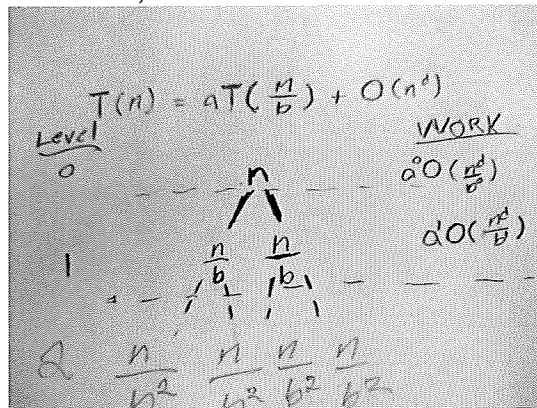 T(n) = aT(n/b) + O(n^d)
Level WORK
0 n a^0 O(n^d/b^0)
1 n/b n/b a^1 O(n^d/b)
2 n/b^2 n/b^2 n/b^2 n/b^2